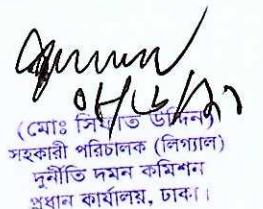 (মোঃ সিফাত উদ্দিন)
সহকারী পরিচালক (লিগ্যাল)
দুর্নীতি দমন কমিশন
প্রধান কার্যালয়, ঢাকা।